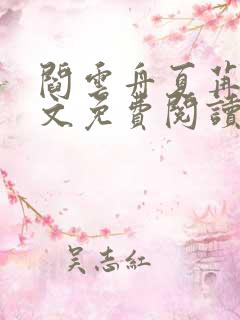 閻雲舟夏
文免費閱讀
吴志紅